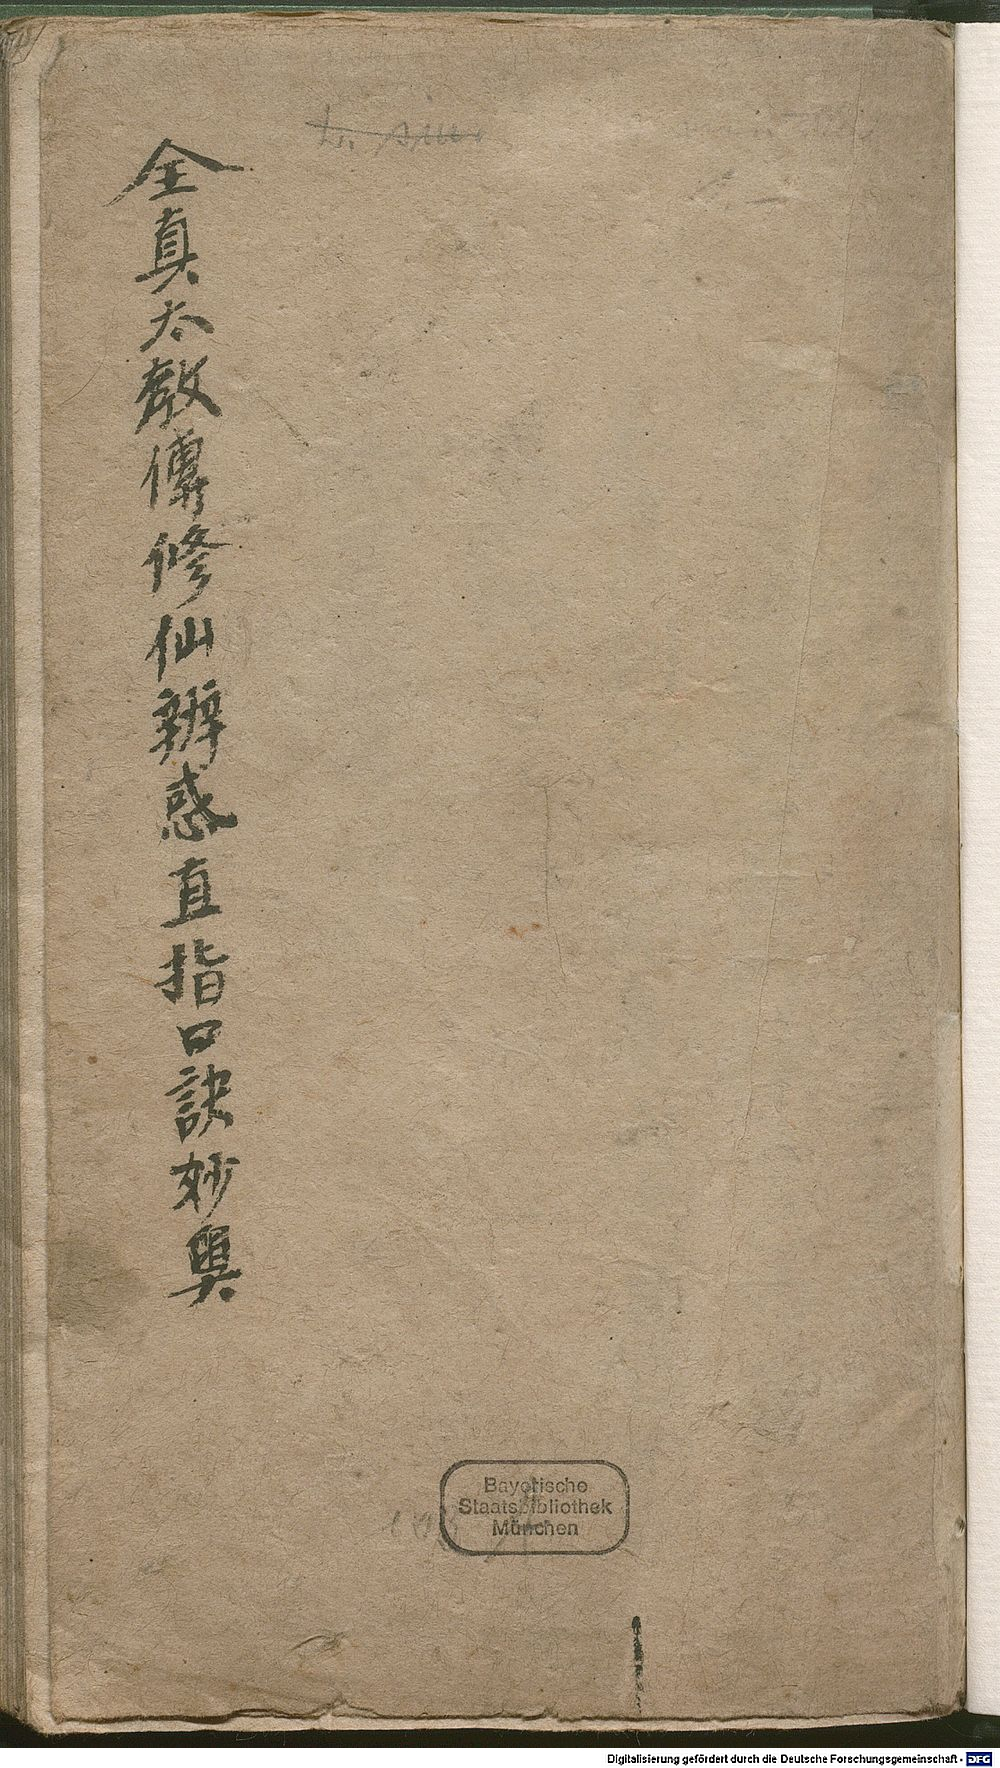 全真太教傳修仙辨惑直指口訣妙奥
Bayerische
Staatsbibliothek
München
Digitalisierung gefördert durch die Deutsche Forschungsgemeinschaft - DFG